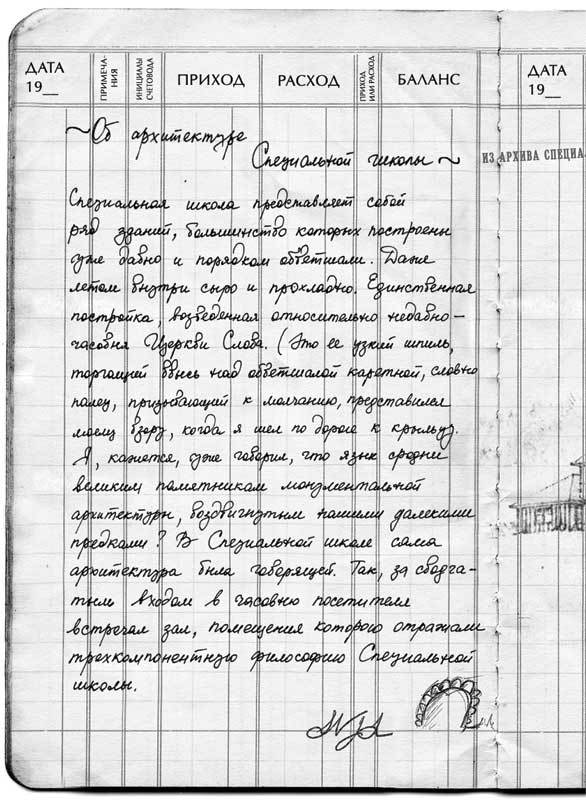 ДАТА
19__
ПРИМЕЧА-
НИЯ
ИНИЦИАЛЫ
СЧЕТОВОДА
ПРИХОД
РАСХОД
ПРИХОД
ИЛИ РАСХОД
БАЛАНС
ДАТА
19__
~Об архитектуре
Специальной школы~
ИЗ АРХИВА СПЕЦИА
Специальная школа представляет собой
ряд зданий, большинство которых построены
уже давно и порядком обветшали. Даже
летом внутри сыро и прохладно. Единственная
постройка, возведенная относительно недавно –
часовня Церкви Слова. (Это ее узкий шпиль,
торчащий ввысь над обветшалой каретной, словно
палец, призывающий к молчанию, представился
моему взору, когда я шел по дороге к крыльцу.
Я, кажется, уже говорил, что язык сродни
великим памятникам монументальной
архитектуры, воздвигнутым нашими далекими
предками? В Специальной школе сама
архитектура была говорящей. Так, за сводча-
тым входом в часовню посетителя
встречал зал, помещения которого отражали
трехкомпонентную философию Специальной
школы.